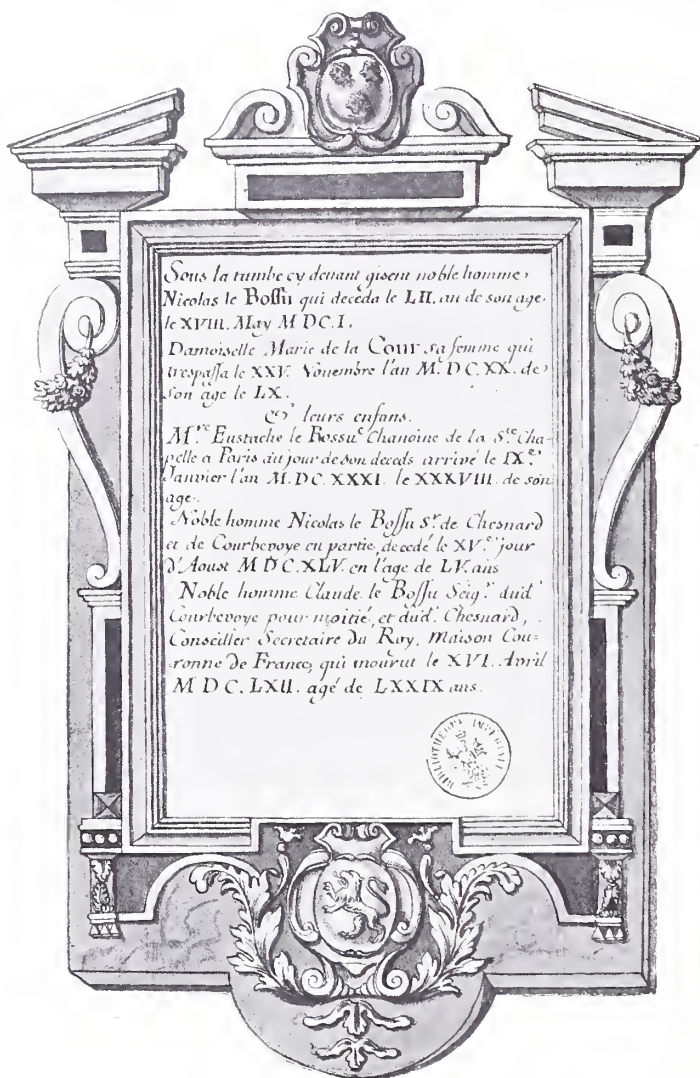 Sous la tumbe cy devant gisent noble homme,
Nicolas le Bossu qui deceda le LII. an de son age,
le XVIII. May MDC.I.
Damoiselle Marie de la Cour sa femme qui
trespassa le XXV. Novembre l'an M. DC. XX. de
son age le LX.
& leurs enfans.
M.re Eustache le Bossu Chanoine de la S.te Cha-
pelle a Paris au jour de son deceds arrivé le IX.e
Janvier l'an M.DC.XXXI. le XXXVIII. de son
age.
Noble homme Nicolas le Bossu S.r de Chesnard
et de Courbevoye en partie, decedé le XV.e jour
d'Aoust MDC.XLV. en l'age de LV. ans
Noble homme Claude le Bossu Seig.r dud.
Courbevoye pour moitié, et dud. Chesnard,
Conseiller Secretaire du Roy, Maison Cou-
ronne de France, qui mourut le XVI. Avril
MDC.LXII. agé de LXXIX ans.
BIBLIOTHEQUE IMPERIALE